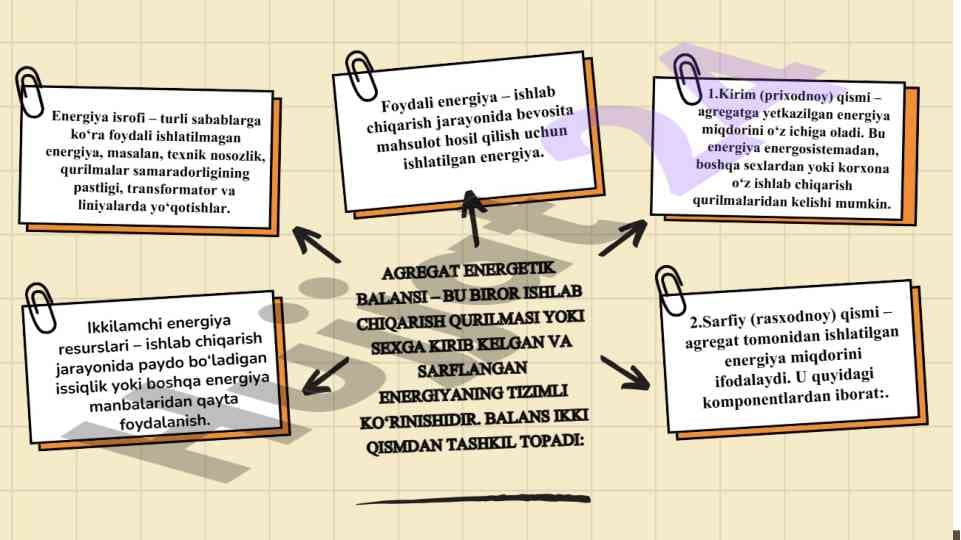 Energiya isrofi – turli sabablarga
ko‘ra foydali ishlatilmagan
energiya, masalan, texnik nosozlik,
qurilmalar samaradorligining
pastligi, transformator va
liniyalarda yo‘qotishlar.
Foydali energiya – ishlab
chiqarish jarayonida bevosita
mahsulot hosil qilish uchun
ishlatilgan energiya.
1.Kirim (prixodnoy) qismi –
agregatga yetkazilgan energiya
miqdorini o‘z ichiga oladi. Bu
energiya energosistemadan,
boshqa sexlardan yoki korxona
o‘z ishlab chiqarish
qurilmalaridan kelishi mumkin.
AGREGAT ENERGETIK
BALANSI – BU BIROR ISHLAB
CHIQARISH QURILMASI YOKI
SEXGA KIRIB KELGAN VA
SARFLANGAN
ENERGIYANING TIZIMLI
KO‘RINISHIDIR. BALANS IKKI
QISMDAN TASHKIL TOPADI:
Ikkilamchi energiya
resurslari – ishlab chiqarish
jarayonida paydo bo‘ladigan
issiqlik yoki boshqa energiya
manbalaridan qayta
foydalanish.
2.Sarfiy (rasxodnoy) qismi –
agregat tomonidan ishlatilgan
energiya miqdorini
ifodalaydi. U quyidagi
komponentlardan iborat:.